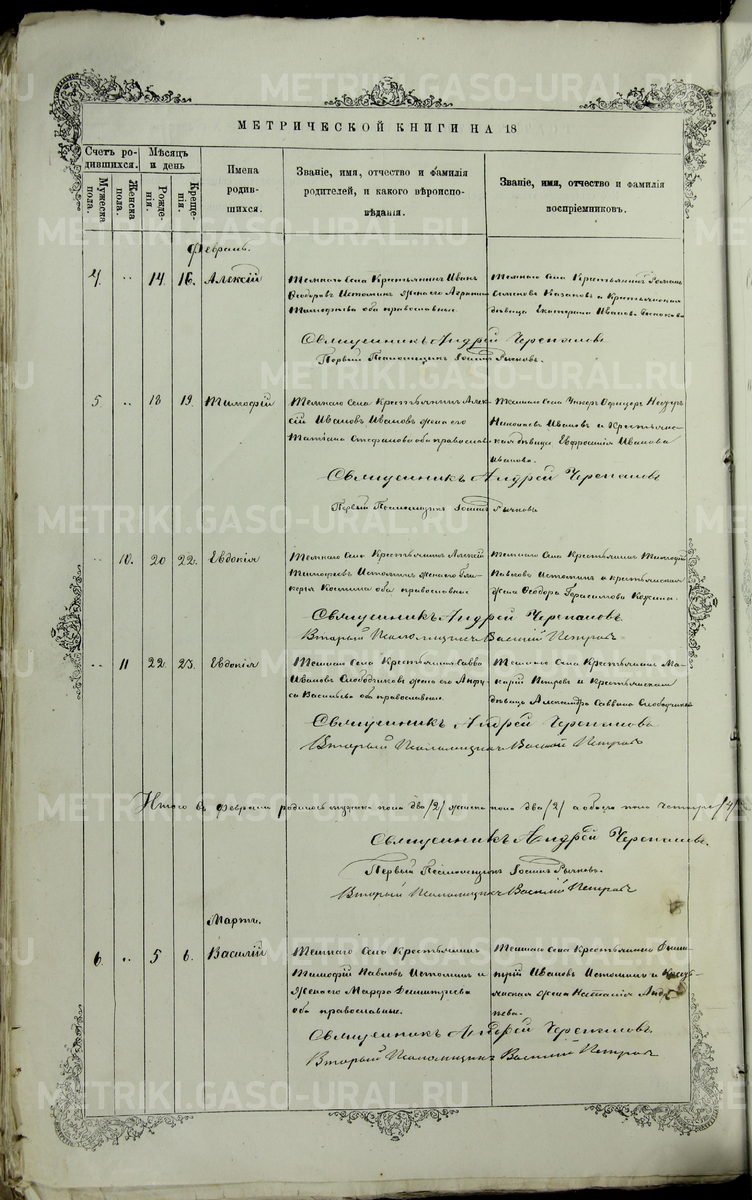 МЕТРИЧЕСКОЙ КНИГИ НА 18
Счетъ ро-
дившихся.
Мужеска пола.
Женска пола.
Мѣсяцъ
и день
Рожде-
нія.
Креще-
нія.
Имена
родив-
шихся.
Званіе, имя, отчество и фамилія
родителей, и какого вѣроиспо-
вѣданія.
Званіе, имя, отчество и фамилія
воспріемниковъ.
Февраль.
4. 14 16. Алексій
Крестьянинъ Иванъ
Ѳеодоровъ Истоминъ
Тимофѣева оба православные.
Села Крестьянинъ
Симеоновъ Казаковъ и Крестьянская
дѣвица Екатерина Иванова
Священникъ Андрей Черепановъ
Первый Псаломщикъ Іоаннъ Рычковъ.
5. 18 19. Тимофей
Села Крестьянинъ Алек-
сій Ивановъ Ивановъ жена его
Татіана Стефанова оба православные
Села Унтеръ Офицеръ
Николаевъ Ивановъ и Крестьянс-
кая дѣвица Евфросинія Иванова
Иванова.
Священникъ Андрей Черепановъ
Первый Псаломщикъ Іоаннъ Рычковъ
10. 20 22. Евдокія
Села Крестьянинъ Алексій
Тимофеевъ Истоминъ жена его Гли-
керія Космина оба православные
Села Крестьянинъ Тимофей
Павловъ Истоминъ и крестьянская
жена Ѳеодора Герасимова
Священникъ Андрей Черепановъ.
Вторый Псаломщикъ Василій Петровъ
11 22 23. Евдокія
Села Крестьянинъ Савва
Ивановъ Слободчиковъ жена его Анфу-
са Васильева оба православные.
Села Крестьянинъ Ма-
карій Петровъ и Крестьянская
дѣвица Александра Саввина Слободчикова
Священникъ Андрей Черепановъ
Вторый Псаломщикъ Василій Петровъ
Итого въ Февралѣ родилось мужска пола два /2/ женска пола два /2/ а обоего пола четыре /4/
Священникъ Андрей Черепановъ.
Первый Псаломщикъ Іоаннъ Рычковъ.
Вторый Псаломщикъ Василій Петровъ
Мартъ.
6. 5 6. Василій
Села Крестьянинъ
Тимофей Павловъ Истоминъ и
жена его Марфа Димитріева
оба православные.
Села Крестьянинъ Дими-
трій Ивановъ Истоминъ и Кресть-
янская жена Анастасія Анд-
реева.
Священникъ Андрей Черепановъ.
Вторый Псаломщикъ Василій Петровъ
METRIKI.GASO-URAL.RU